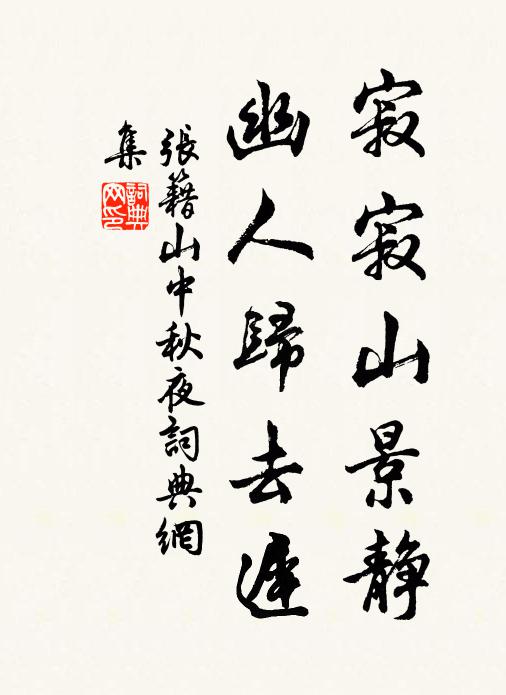 寂寂山景静
幽人歸去遲
張籍山中秋夜詞典網
集
詞典网印